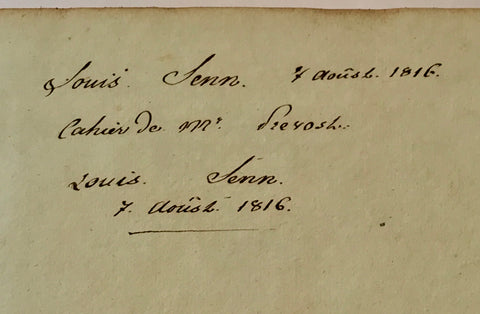 Louis. Senn. 7 Aoûst. 1816.
Cahier de Mr. Prevost.
Louis. Senn.
7. Aoûst. 1816.